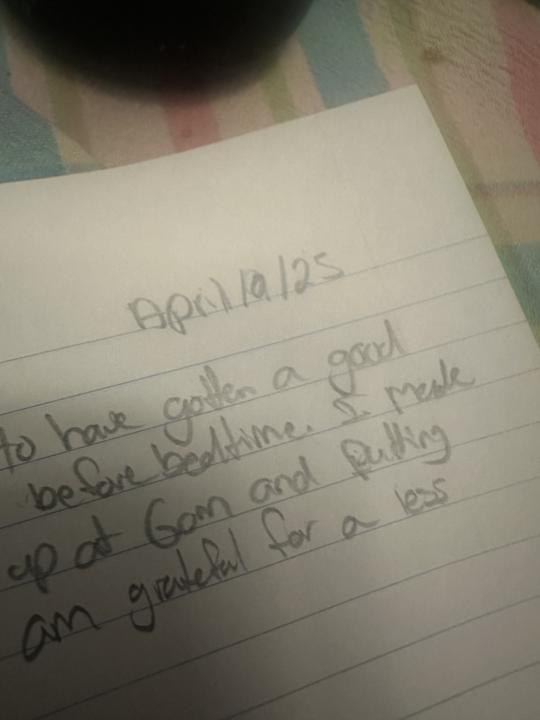 April/9/25
to have gotten a good
before bedtime. I made
up at 6am and putting
am grateful for a less